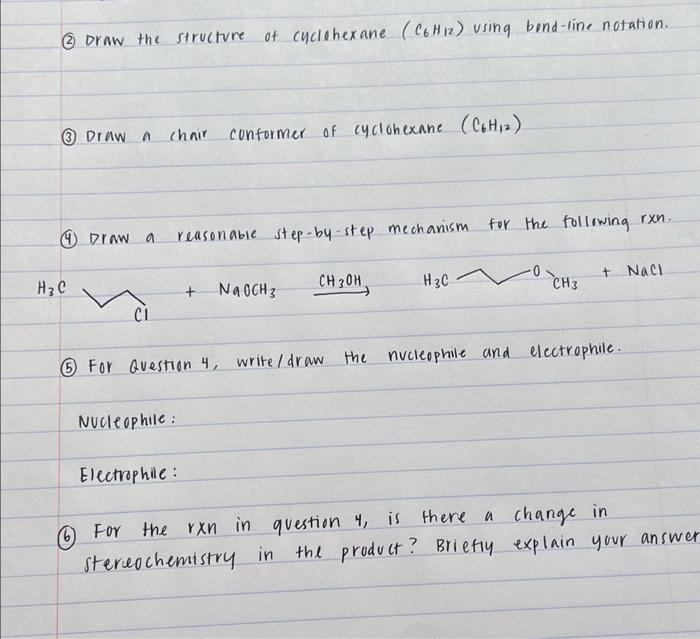 ② Draw the structure of cyclohexane (C6H12) using bond-line notation.
③ Draw a chair conformer of cyclohexane (C6H12)
④ Draw a reasonable step-by-step mechanism for the following rxn.
H3C Cl + NaOCH3 CH3OH → H3C O CH3 + NaCl
⑤ For Question 4, write/draw the nucleophile and electrophile.
Nucleophile:
Electrophile:
⑥ For the rxn in question 4, is there a change in
stereochemistry in the product? Briefly explain your answer